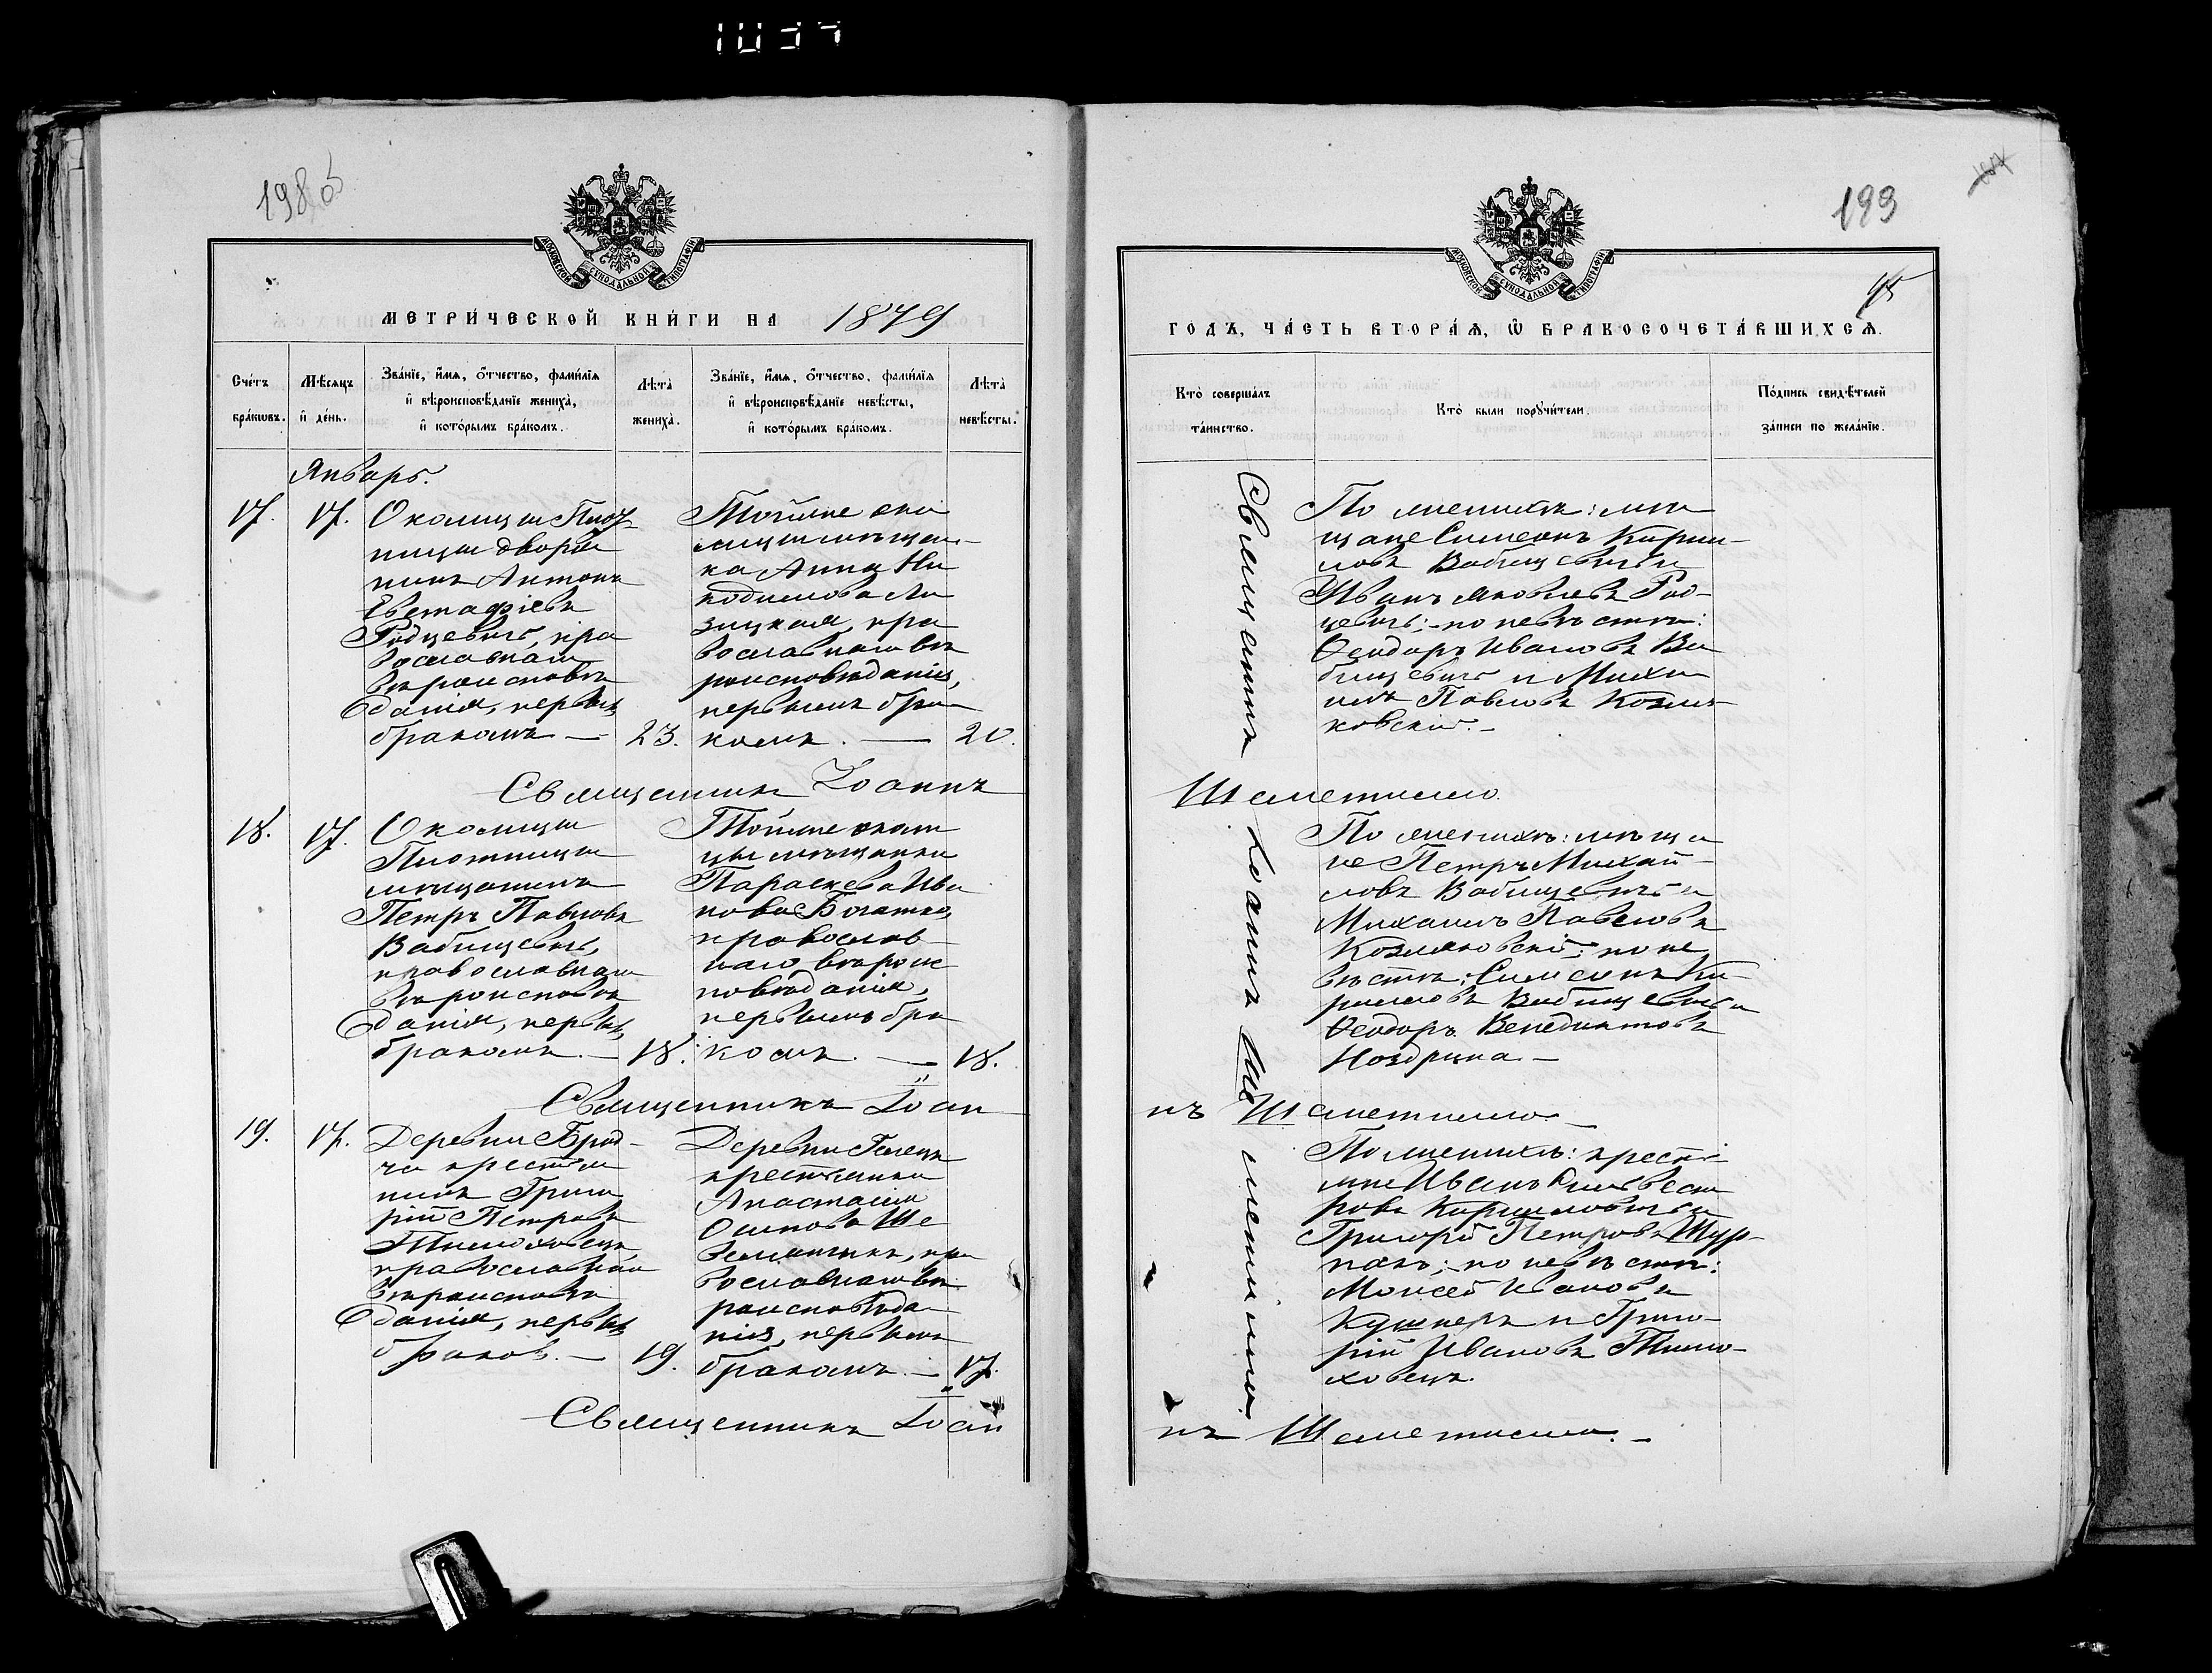 198об
МОСКОВСКОЙ СѴНОДАЛЬНОЙ ТИПОГРАФІИ
МЕТРИ́ЧЕСКОЙ КНИ́ГИ НА 1879
Сче́тъ бра́кѡвъ.
Мѣ́сѧцъ и҆ де́нь.
Зва́нїе, и҆́мѧ, ѻ҆́тчество, фамилїѧ
и҆ вѣроисповѣ́данїе жениха̀,
и҆ кото́рымъ бра́комъ.
Лѣта̀ жениха̀.
Зва́нїе, и҆́мѧ, ѻ҆́тчество, фами́лїѧ
и҆ вѣроисповѣ́данїе невѣ́сты,
и҆ кото́рымъ бра́комъ.
Лѣта̀ невѣ́сты.
Январь.
17.
17.
Околицы Плот-
ницы дворя
нинъ Антонъ
Евстафіевъ
Родцевичъ, пра
вославнаго
вѣроисповѣ
данія, первымъ
бракомъ —
23.
Тойже око
лицы мѣщан-
ка Анна Ни
кодимова Ли
зицкая, пра
вославнаго вѣ
роисповѣданія,
первымъ бра
комъ. —
20.
Священникъ Іоаннъ
18.
17.
Околицы
Плотницы
мѣщанинъ
Петръ Павловъ
Вабищевичъ,
православнаго
вѣроисповѣ
данія, первымъ
бракомъ. —
18.
Тойже околи
цы мѣщанка
Параскева Ива
нова Богатко,
православ-
наго вѣроис
повѣданія,
первымъ бра
комъ. —
18.
Священникъ Іоан
19.
17.
Деревни Брод-
ча крестья
нинъ Григо
рій Петровъ
Тимоховецъ,
православнаго
вѣроисповѣ
данія, первымъ
браком. —
19.
Деревни
крестьянка
Анастасія
Осипова Ше
, пра
вославнаго вѣ
роисповѣда
нія, первымъ
бракомъ. —
17.
Священникъ Іоан
199
95
МОСКОВСКОЙ СѴНОДАЛЬНОЙ ТИПОГРАФІИ
ГО́ДЪ, ЧА́СТЬ ВТОРА́Ѧ, Ѽ БРАКОСОЧЕТА́ВШИХСѦ.
Кто̀ соверша́лъ та́инство.
Кто̀ были порꙋчи́тели.
По́дпись свидѣ́телей
за́писи по жела́нїю.
Священникъ Іоаннъ Шеметилло.
По женихѣ: мѣ
щане Симеонъ Кирил-
ловъ Вабищевичъ и
Иванъ Яковлевъ Род-
цевичъ; по невѣстѣ:
Ѳеодоръ Ивановъ Ва
бищевичъ и Миха
илъ Павловъ Козля-
ковскій. —
Шеметилло.
По женихѣ: мѣща
не Петръ Михай-
ловъ Вабищевичъ и
Михаилъ Павловъ
Козляковскій; по не
вѣстѣ: Симеонъ Ки-
рилловъ Вабищевичъ и
Ѳеодоръ Венедиктовъ
Ноздрина. —
нъ Шеметилло. —
По женихѣ: крестья
не Иванъ Сильвест
ровъ Кирилловичъ и
Григорій Петровъ
; по невѣстѣ:
Моисей Ивановъ
Кушнеръ и Григо-
рій Ивановъ Тимо-
ховецъ.
нъ Шеметилло. —